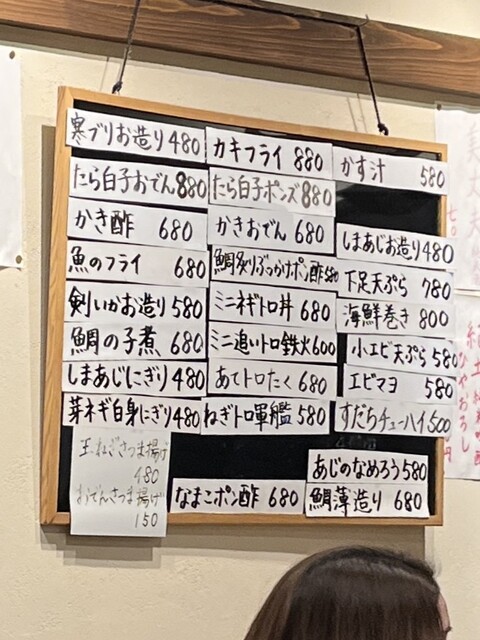 寒ブリお造り480
たら白子おでん880
かき酢 680
魚のフライ 680
剣いかお造り580
鯛の子煮 680
しまあじにぎり480
芽ネギ白身にぎり480
玉ねぎさつま揚げ
480
おでんさつま揚げ
150
カキフライ 880
たら白子ポンズ880
かきおでん 680
鯛炙りぶっかけポン酢580
ミニネギトロ丼 680
ミニ追いトロ鉄火600
あてトロたく 680
ねぎトロ軍艦 580
なまこポン酢 680
かす汁 580
しまあじお造り480
下足天ぷら 780
海鮮巻き 800
小エビ天ぷら580
エビマヨ 580
すだちチューハイ500
あじのなめろう580
鯛薄造り 680
ひやおろし